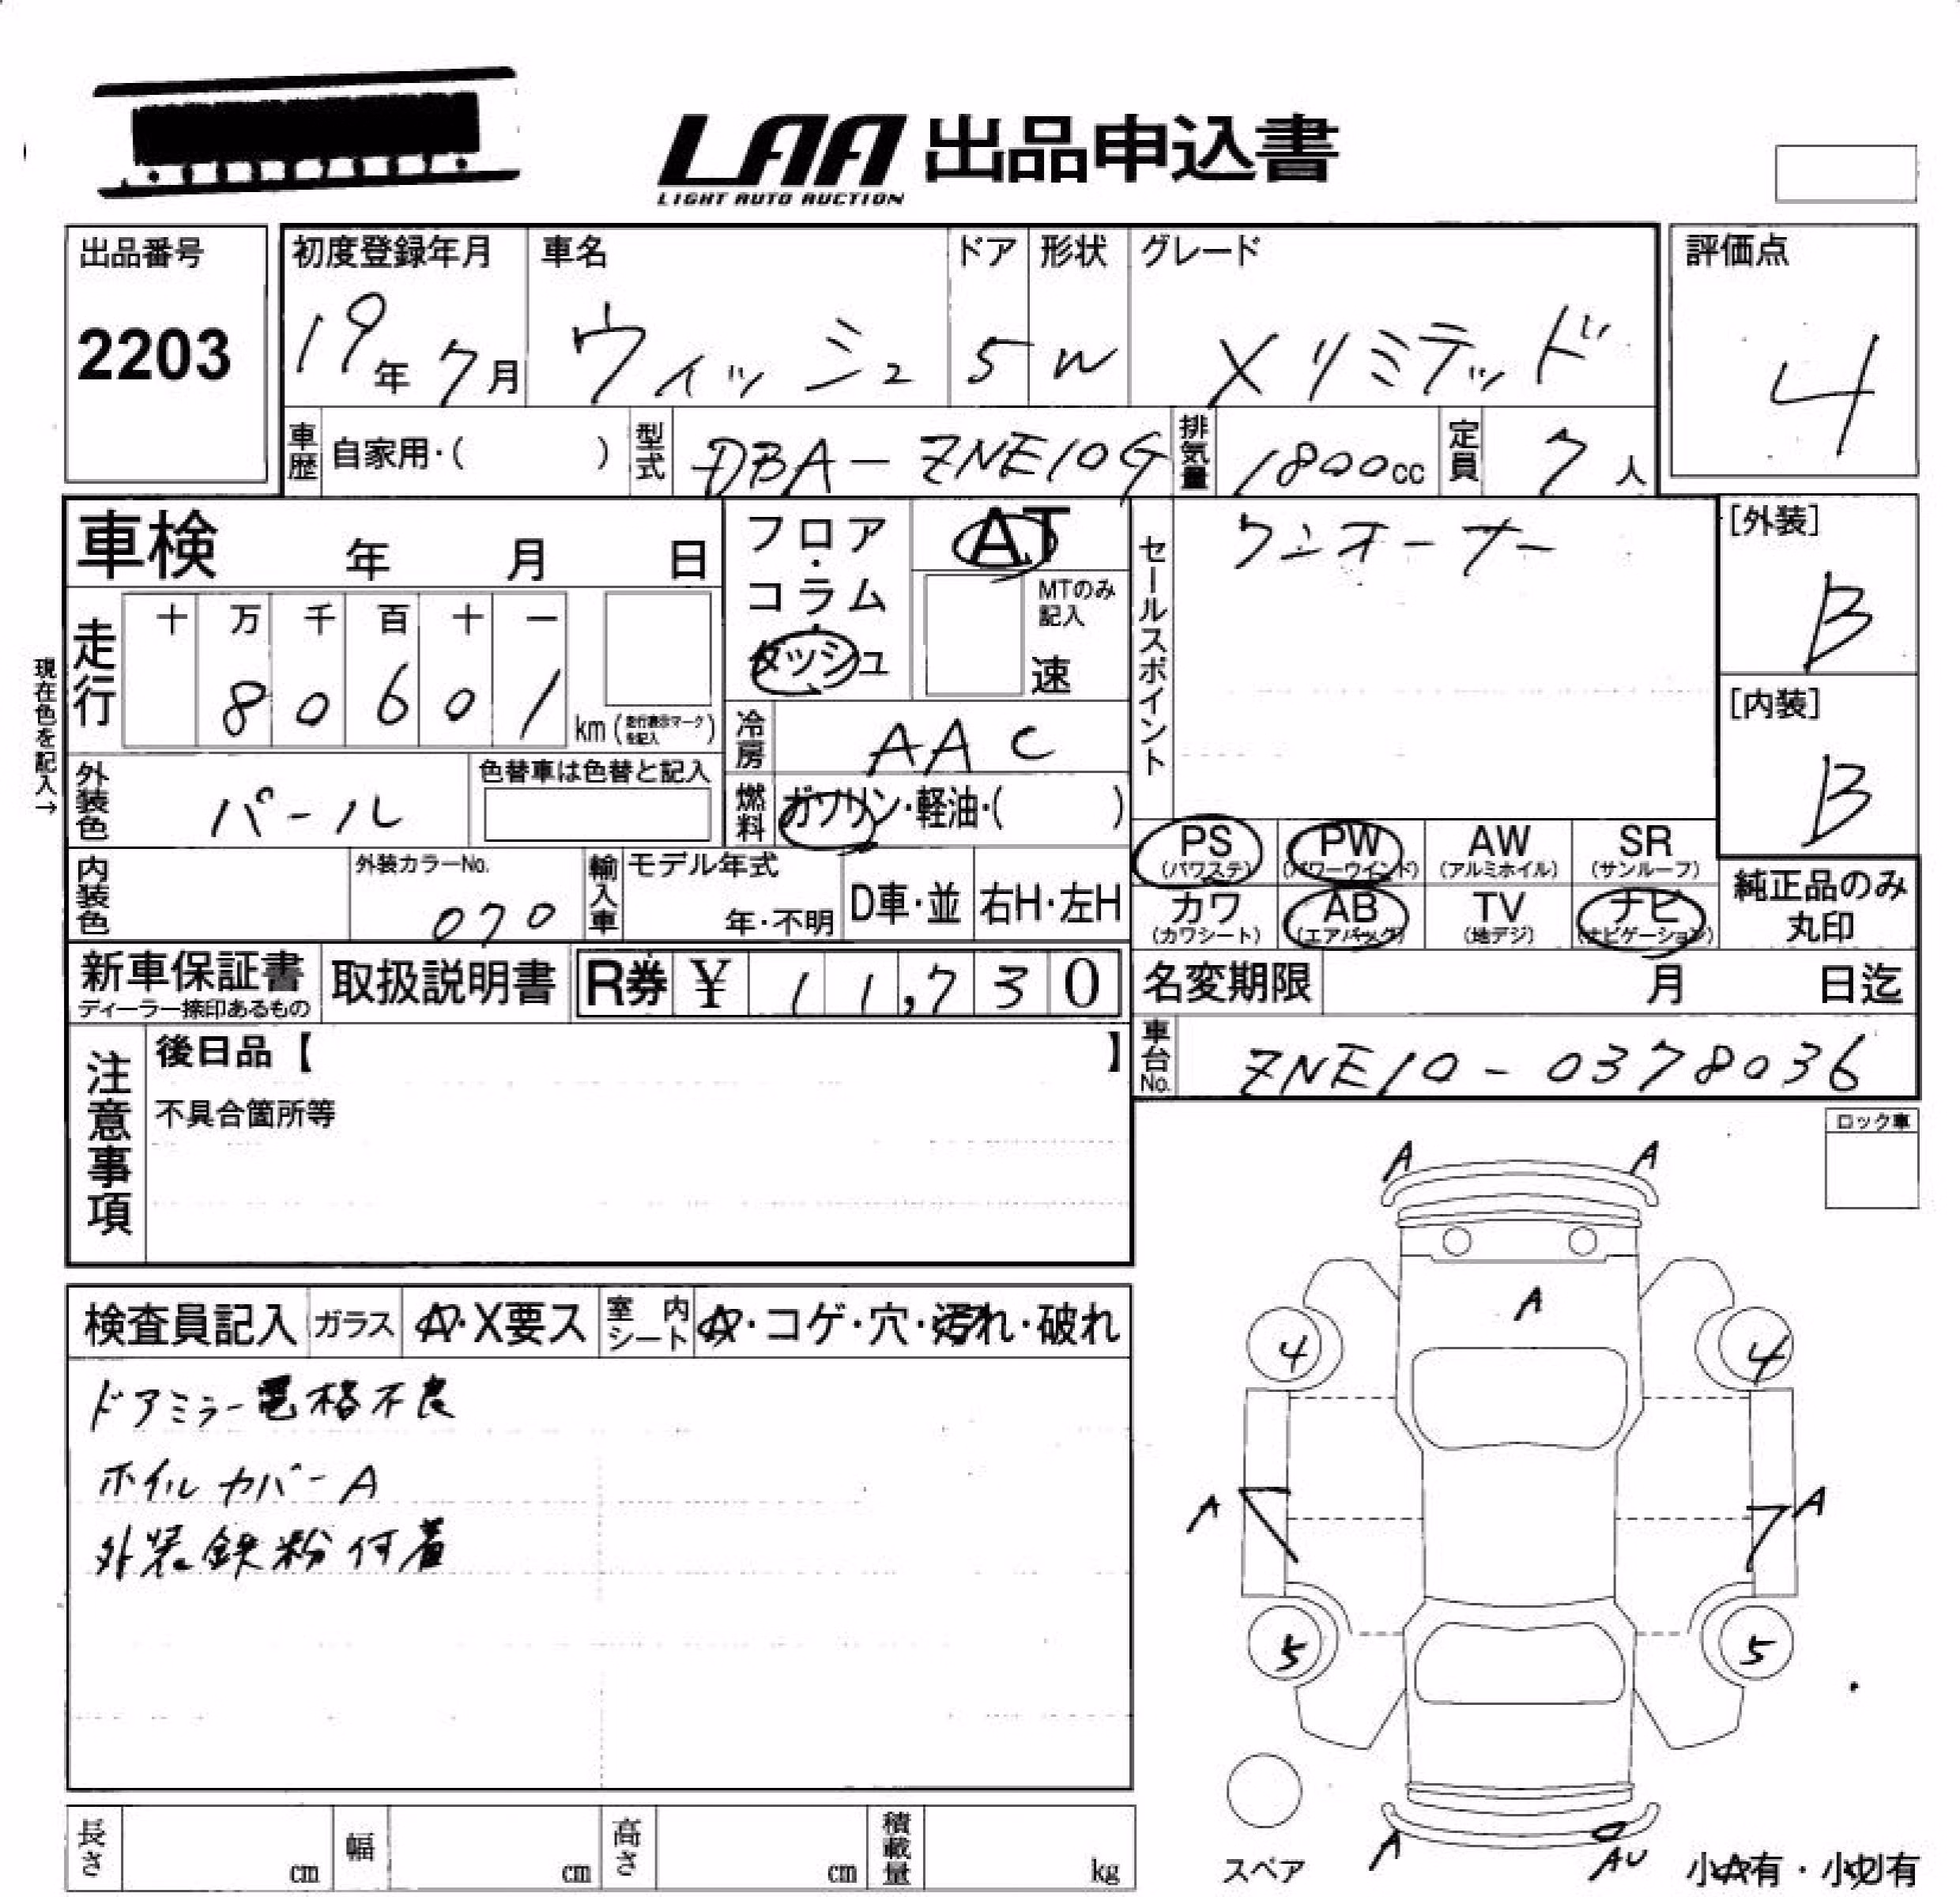 LAA 出品申込書
LIGHT AUTO AUCTION
出品番号
2203
初度登録年月
19年 7月
車名
ウィッシュ
ドア
5
形状
W
グレード
Xリミテッド
評価点
4
車歴 自家用・( )
型式 DBA-ZNE10G
排気量 1800cc
定員 7人
車検 年 月 日
フロア・コラム・ダッシュ
AT
MTのみ記入
速
セールスポイント
ワンオーナー
[外装]
B
[内装]
B
現在色を記入→
走行
十 万 千 百 十 一
8 0 6 0 1
km (走行表示マークを記入)
冷房 AAC
外装色 パール
色替車は色替と記入
燃料 ガソリン・軽油・( )
PS (パワステ)
PW (パワーウインド)
AW (アルミホイル)
SR (サンルーフ)
内装色
外装カラーNo.
070
輸入車
モデル年式
年・不明
D車・並
右H・左H
カワ (カワシート)
AB (エアバッグ)
TV (地デジ)
ナビ (ナビゲーション)
純正品のみ丸印
新車保証書
ディーラー捺印あるもの
取扱説明書
R券 ¥ 11,730
名変期限 月 日迄
車台No. ZNE10-0378036
注意事項
後日品【 】
不具合箇所等
ロック車
A A
A
4 4
A A
5 5
A AU
検査員記入
ガラス A・X要ス
室内シート A・コゲ・穴・汚れ・破れ
ドアミラー電格不良
ホイルカバーA
外装鉄粉付着
長さ cm
幅 cm
高さ cm
積載量 kg
スペア
小A有・小U有